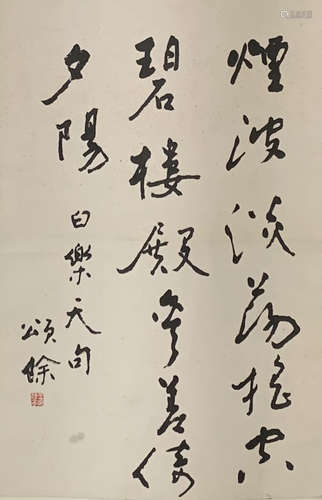 煙波淡蕩搖空
碧樓殿參差倚
夕陽 白樂天句
頌餘